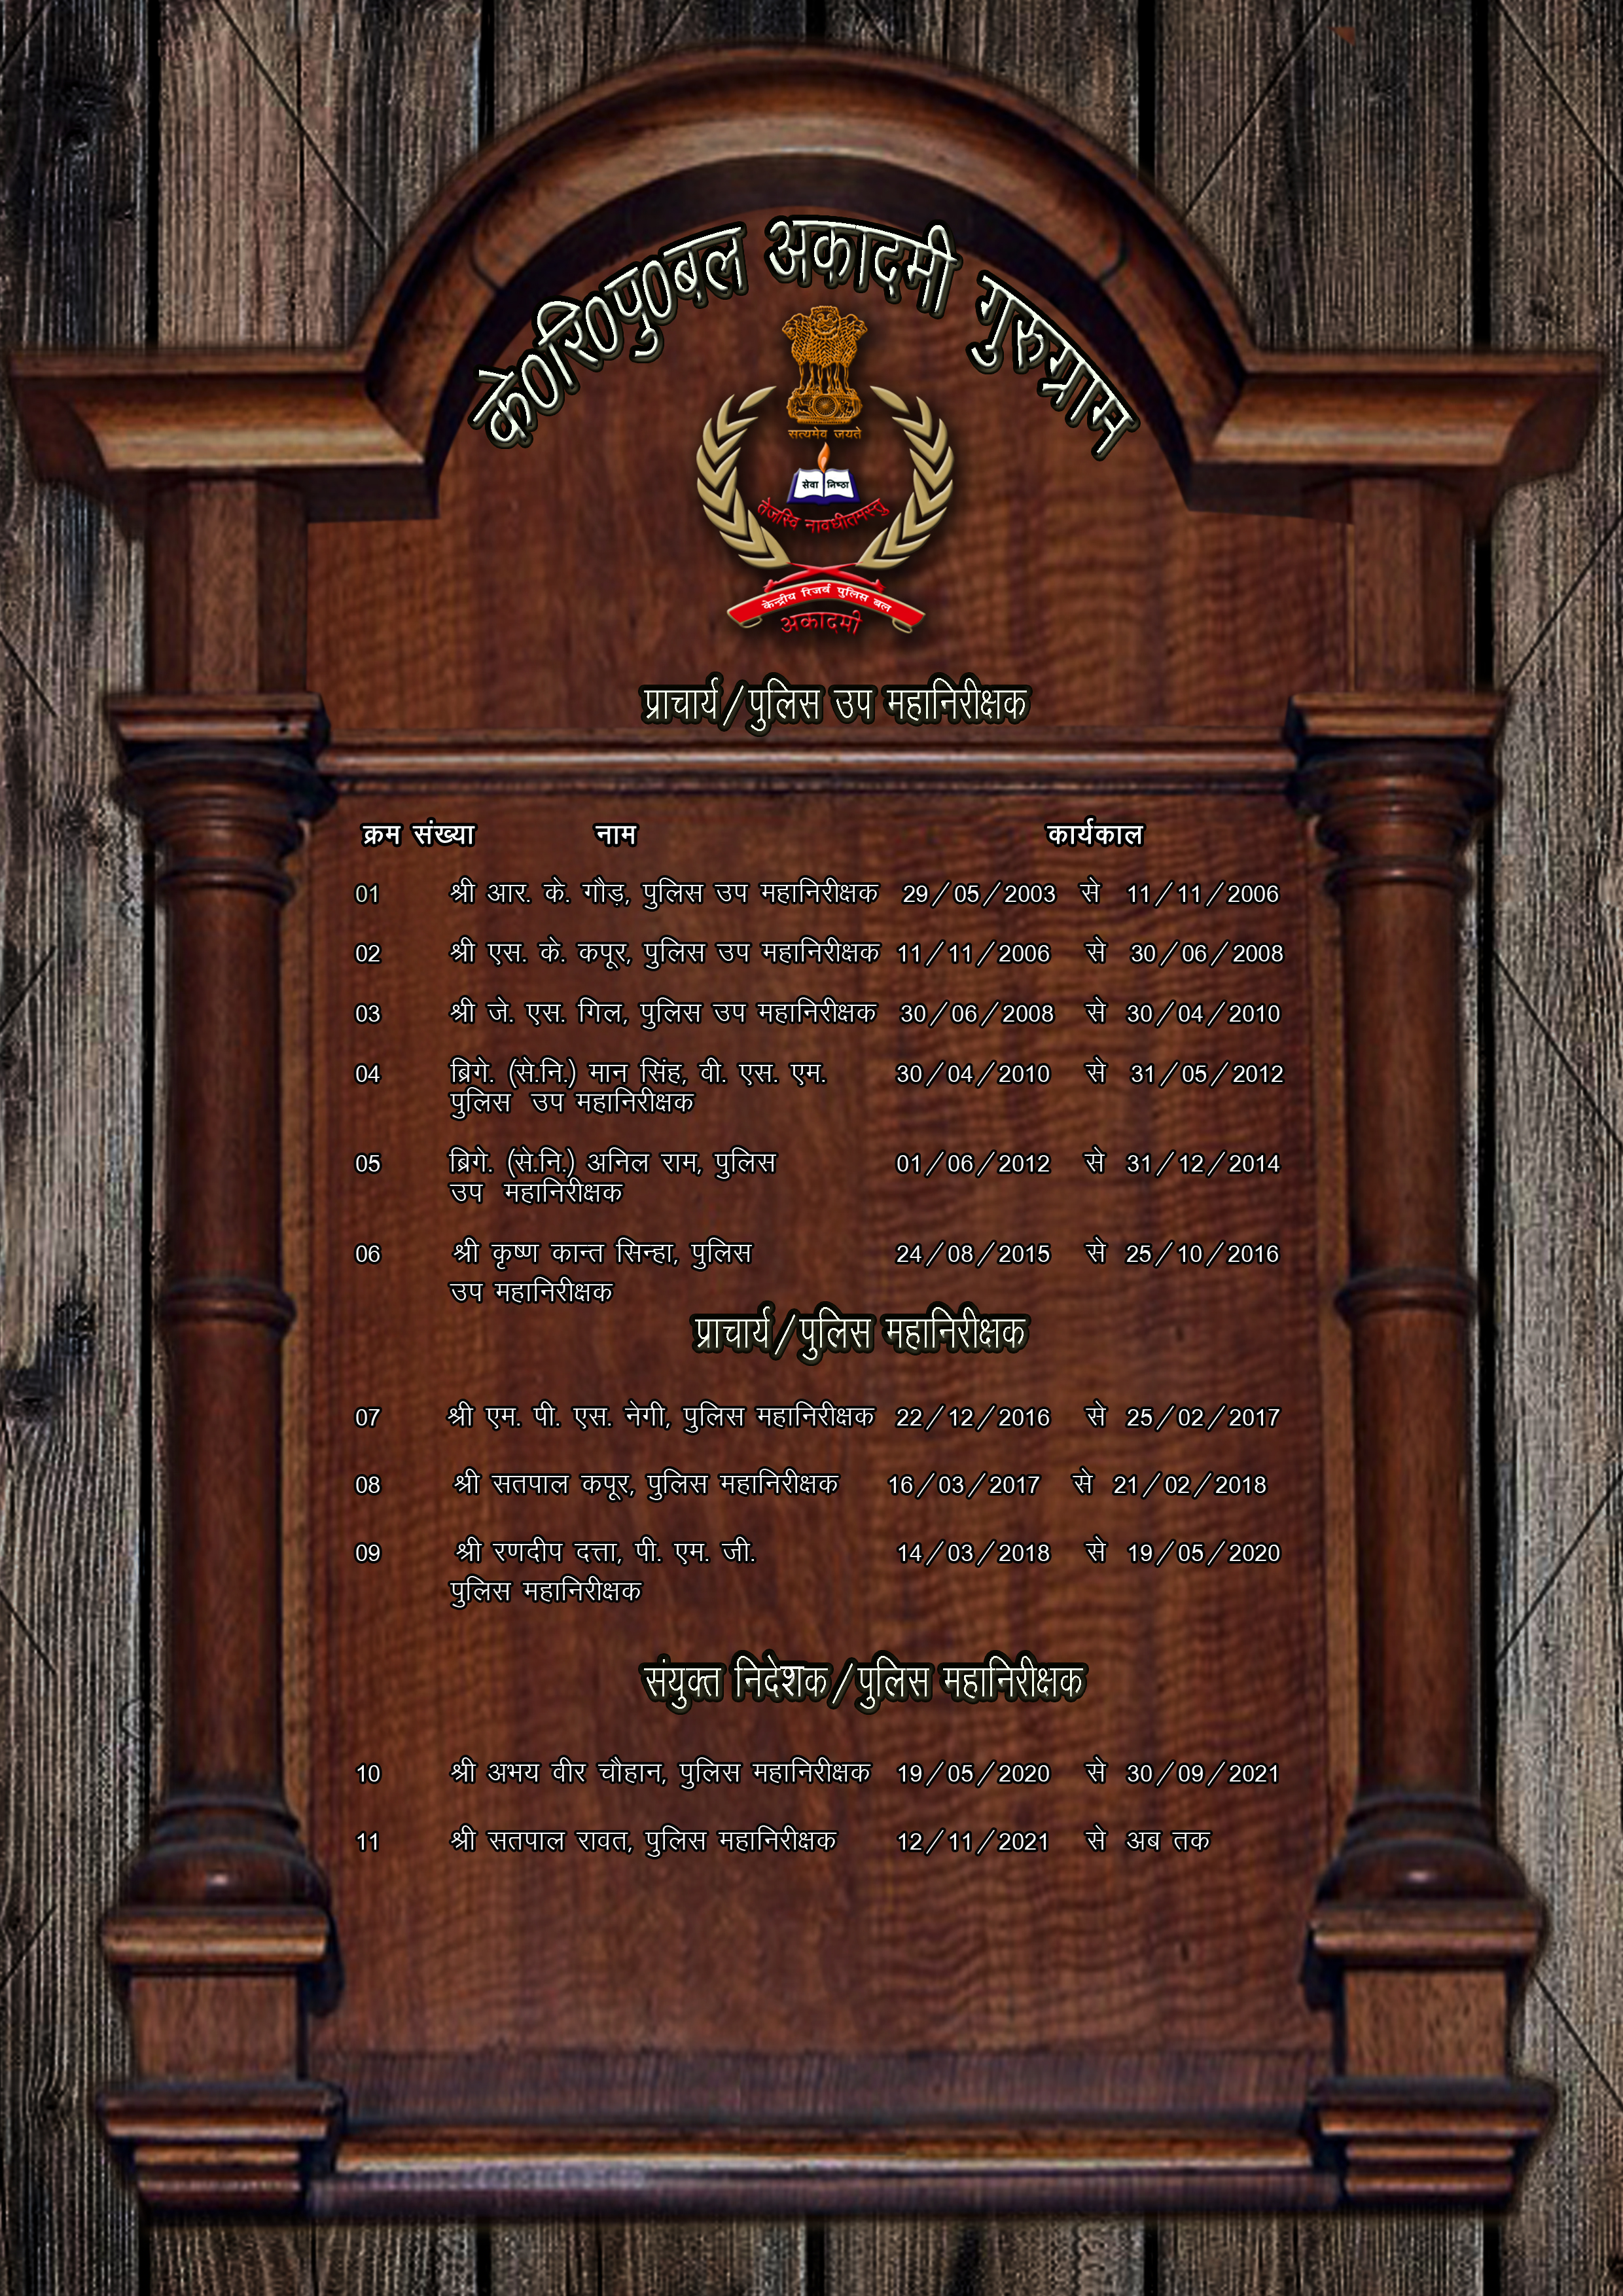 के०रि०पु०बल अकादमी गुरुग्राम
सत्यमेव जयते
सेवा निष्ठा
तेजस्वि नावधीतमस्तु
केन्द्रीय रिजर्व पुलिस बल
अकादमी
प्राचार्य/पुलिस उप महानिरीक्षक
क्रम संख्या नाम कार्यकाल
01 श्री आर. के. गौड़, पुलिस उप महानिरीक्षक 29/05/2003 से 11/11/2006
02 श्री एस. के. कपूर, पुलिस उप महानिरीक्षक 11/11/2006 से 30/06/2008
03 श्री जे. एस. गिल, पुलिस उप महानिरीक्षक 30/06/2008 से 30/04/2010
04 ब्रिगे. (से.नि.) मान सिंह, वी. एस. एम. 30/04/2010 से 31/05/2012
पुलिस उप महानिरीक्षक
05 ब्रिगे. (से.नि.) अनिल राम, पुलिस 01/06/2012 से 31/12/2014
उप महानिरीक्षक
06 श्री कृष्ण कान्त सिन्हा, पुलिस 24/08/2015 से 25/10/2016
उप महानिरीक्षक
प्राचार्य/पुलिस महानिरीक्षक
07 श्री एम. पी. एस. नेगी, पुलिस महानिरीक्षक 22/12/2016 से 25/02/2017
08 श्री सतपाल कपूर, पुलिस महानिरीक्षक 16/03/2017 से 21/02/2018
09 श्री रणदीप दत्ता, पी. एम. जी. 14/03/2018 से 19/05/2020
पुलिस महानिरीक्षक
संयुक्त निदेशक/पुलिस महानिरीक्षक
10 श्री अभय वीर चौहान, पुलिस महानिरीक्षक 19/05/2020 से 30/09/2021
11 श्री सतपाल रावत, पुलिस महानिरीक्षक 12/11/2021 से अब तक